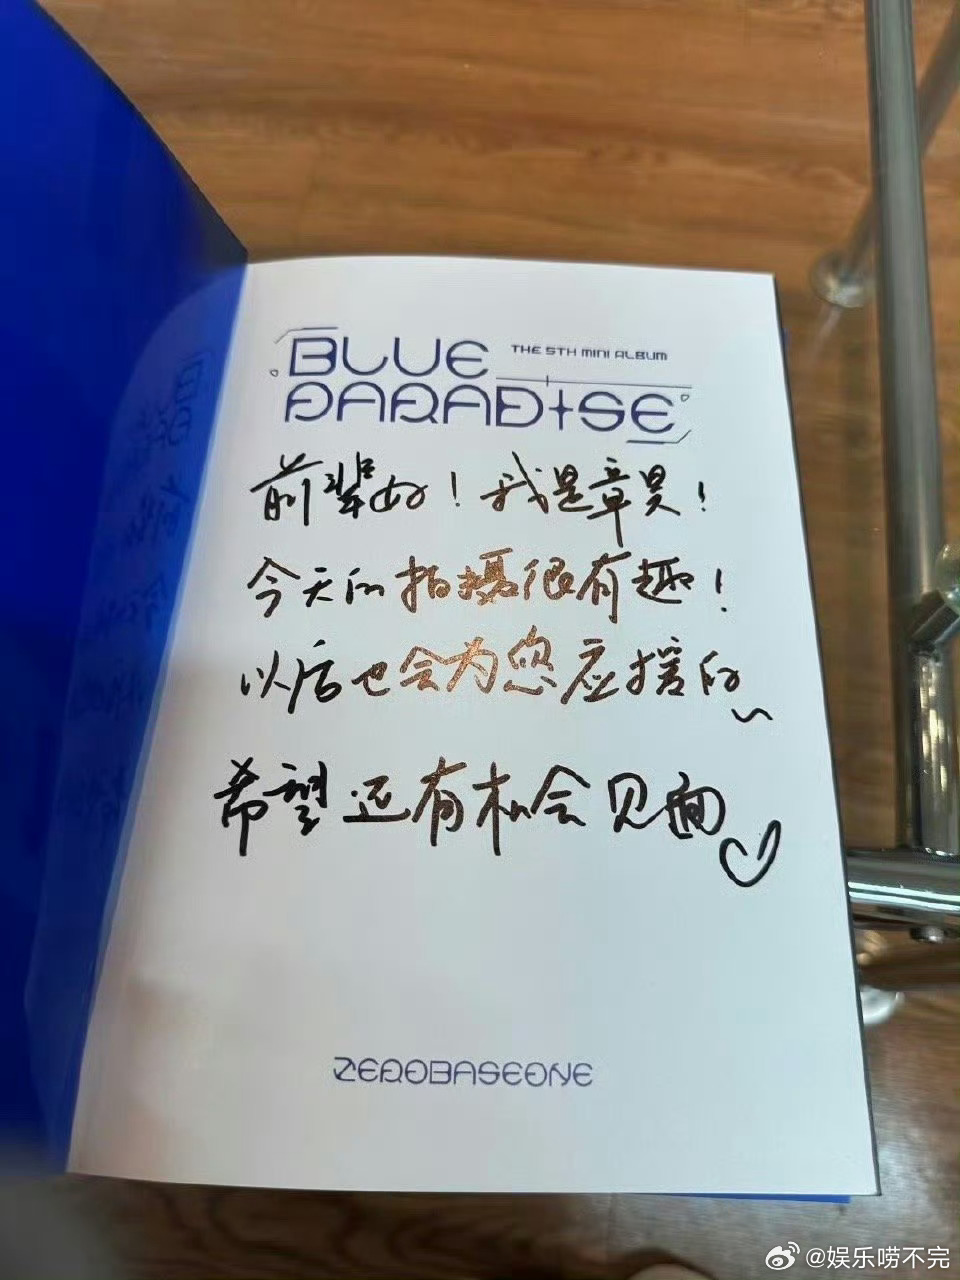 BLUE
THE 5TH MINI ALBUM
PARADISE
前辈好！我是章昊！
今天的拍摄很有趣！
以后也会为您应援的~
希望还有机会见面♡
ZEROBASEONE
@娱乐唠不完